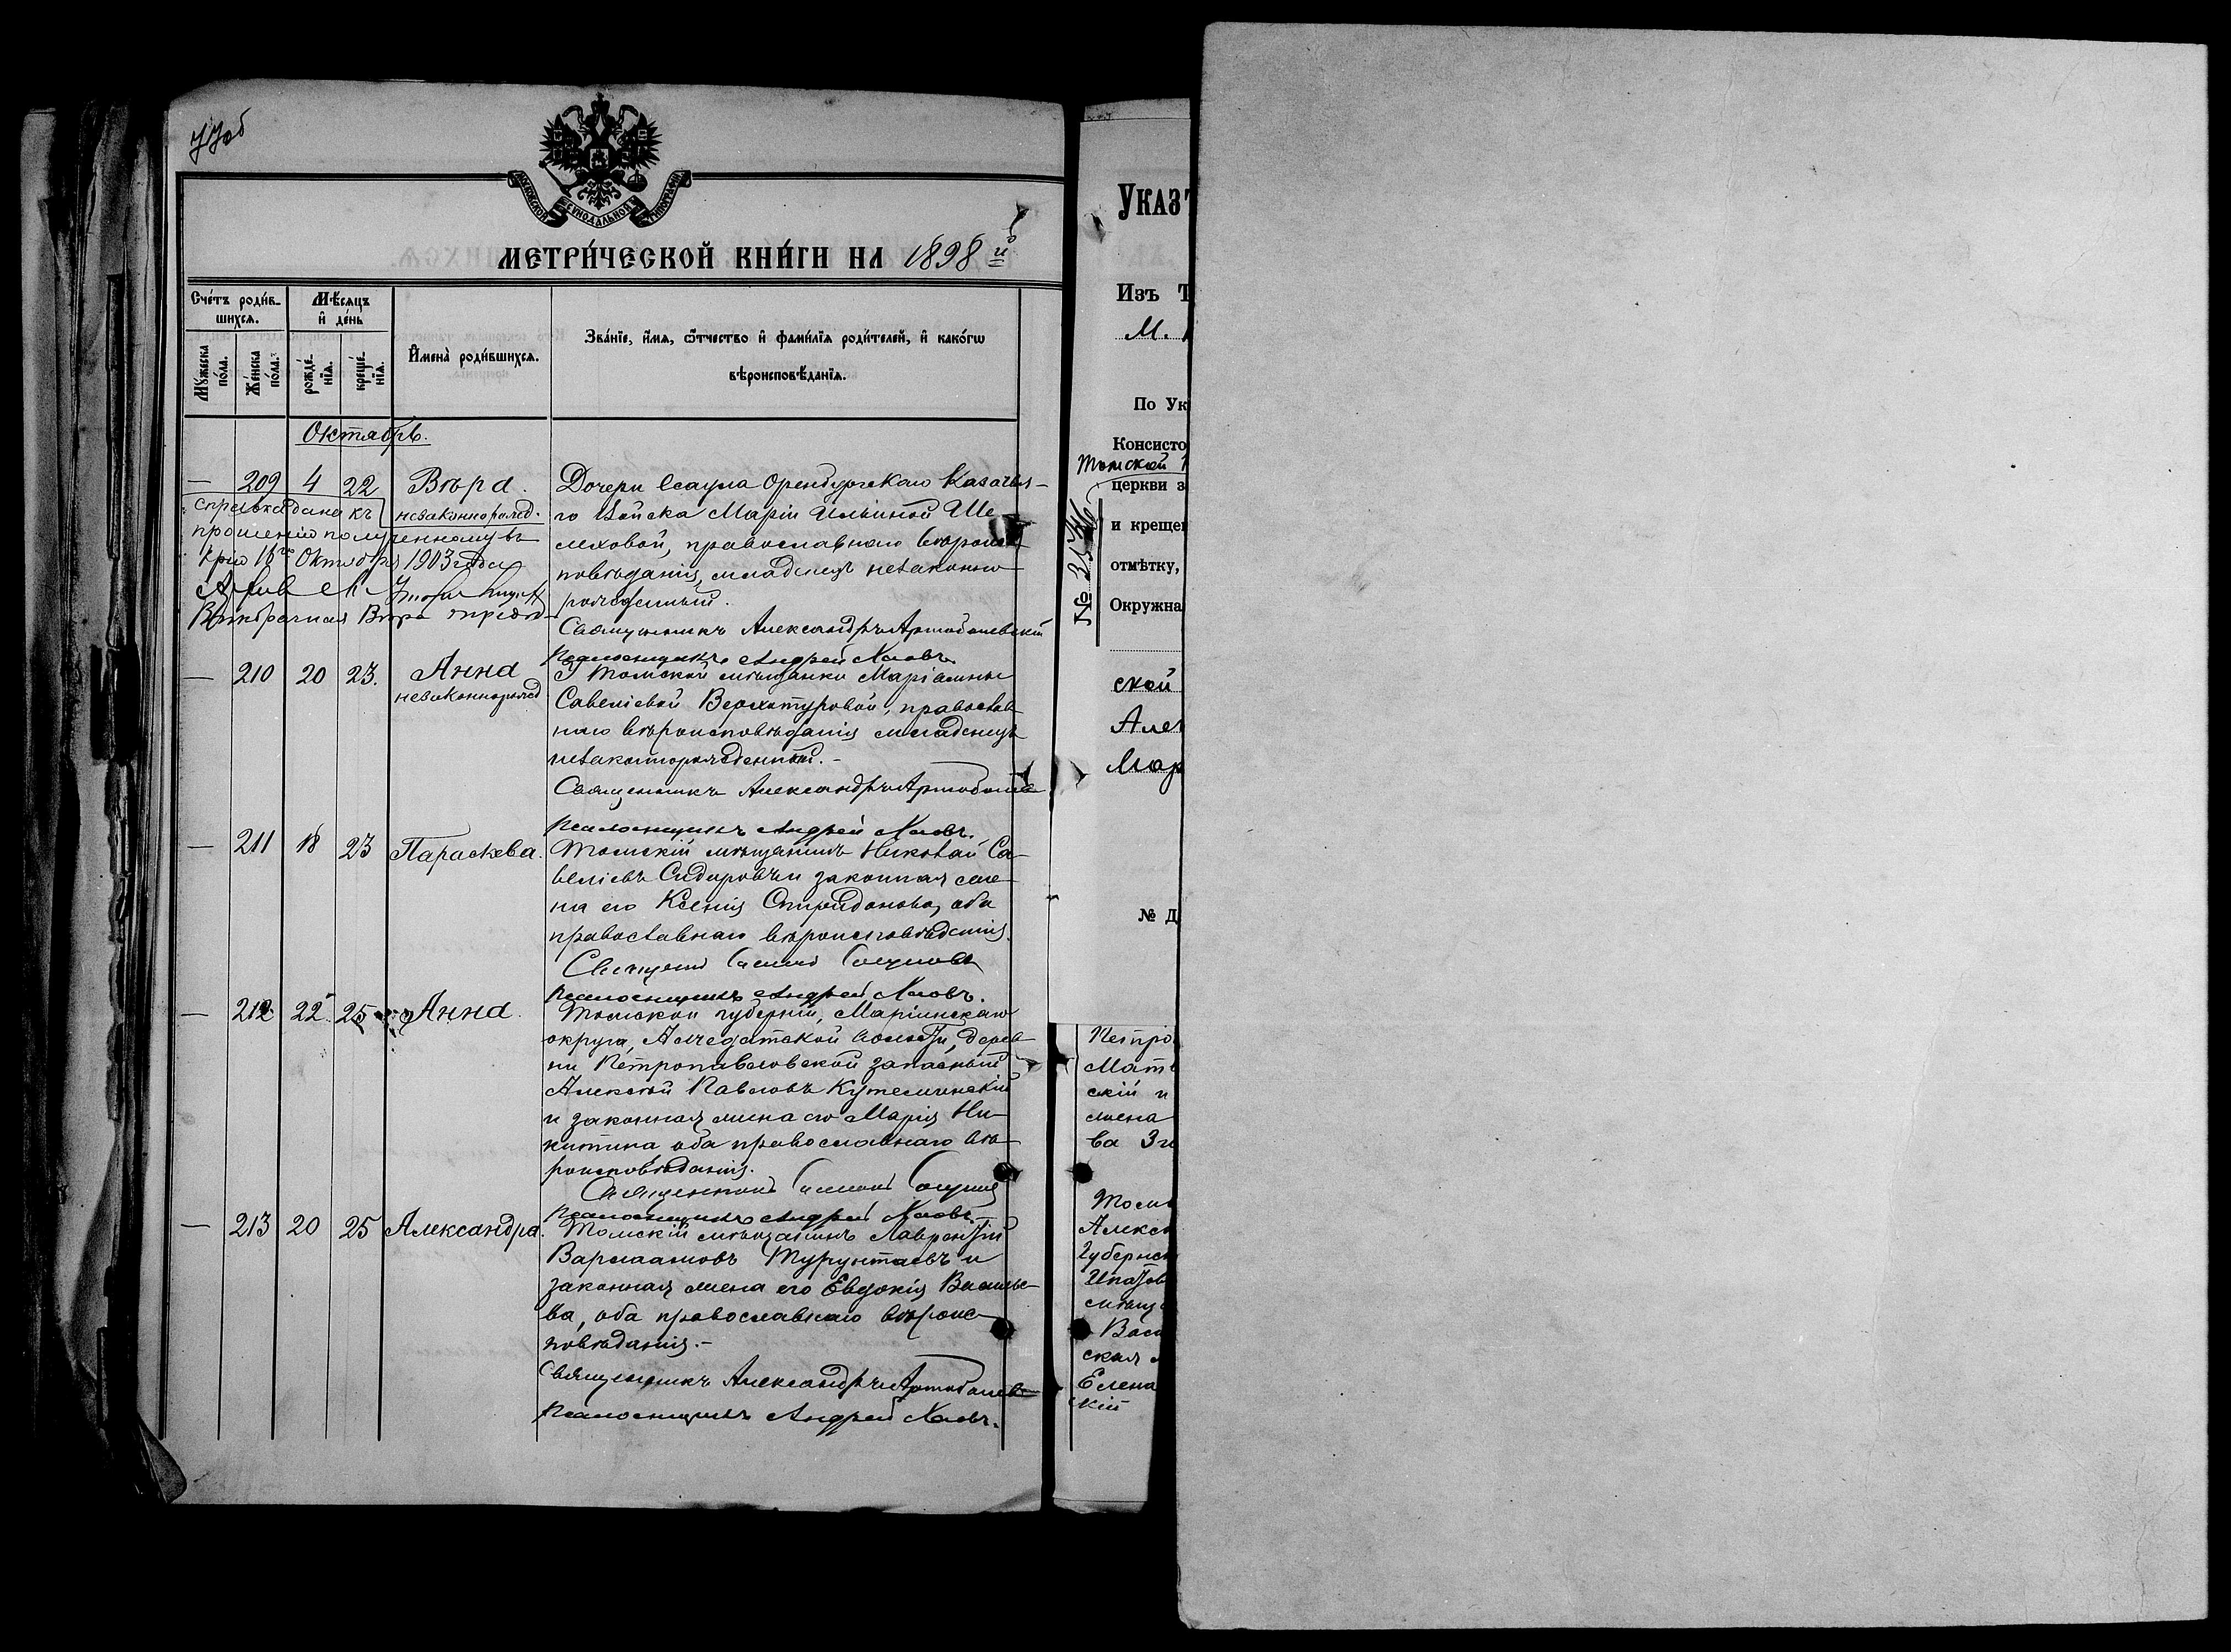 77об
МОСКОВСКОЙ СѴНОДАЛЬНОЙ ТИПОГРАФІИ
МЕТРИ́ЧЕСКОЙ КНИ́ГИ НА 1898 й
Сче́тъ роди́в-
шихсѧ.
Мѣ́сѧцъ
и҆ де́нь
Му́жеска по́ла.
Же́нска по́ла.
рожде́нїѧ.
креще́нїѧ.
И҆мена̀ роди́вшихсѧ.
Зва́нїе, и҆́мѧ, ѻ҆́тчество и҆ фами́лїѧ роди́телей, и҆ како́гѡ
вѣроисповѣ́данїѧ.
Октябрь.
— 209 4 22 Вѣра.
незаконнорожд.
Дочери Есаула Оренбургскаго Казачья-
го Войска Маріи Ильиной Ше-
леховой, православнаго вѣроис-
повѣданія, младенецъ незаконно-
рожденный.
Священникъ Александръ Артоболевскій
Псаломщикъ Андрей
Справка дана къ
прошенію полученному въ
16го Октября 1903 года
Внѣбрачная Вѣра
— 210 20 23. Анна
незаконнорожд
У Томской мѣщанки Маріамны
Савеліевой Верхотуровой, православ-
наго вѣроисповѣданія младенецъ
незаконнорожденный.-
Священникъ Александръ Артоболев
Псаломщикъ Андрей
— 211 18 23 Параскева.
Томскій мѣщанинъ Николай Са-
веліевъ Сидоровъ и законная же-
на его Ксенія Спиридонова, оба
православнаго вѣроисповѣданія.
Псаломщикъ Андрей
— 212 22 25 Анна.
Томской губерніи, Маріинскаго
округа, Алчедатской волости, дерев-
ни Петропавловской запасный
Алексѣй Павловъ
и законная жена его Марія Ни-
китина оба православнаго вѣ-
роисповѣданія.
Священникъ
Псаломщикъ Андрей
— 213 20 25 Александра.
Томскій мѣщанинъ Лаврентій
Варлаамовъ Турунтаевъ и
законная жена его Евдокія Василье-
ва, оба православнаго вѣроис-
повѣданія.-
Священникъ Александръ Артоболев
Псаломщикъ Андрей
УКАЗ
Изъ Т
М.
По Ук
Консисто
Томской
церкви з
и креще
отмѣтку,
Окружна
№
ской
Алек
Мар
№ Д
Петро
Матв
скій и
жена
ва
Томс
Алекс
Губернск
Ипатов
мѣщ
Васи
ская
Елена
скій